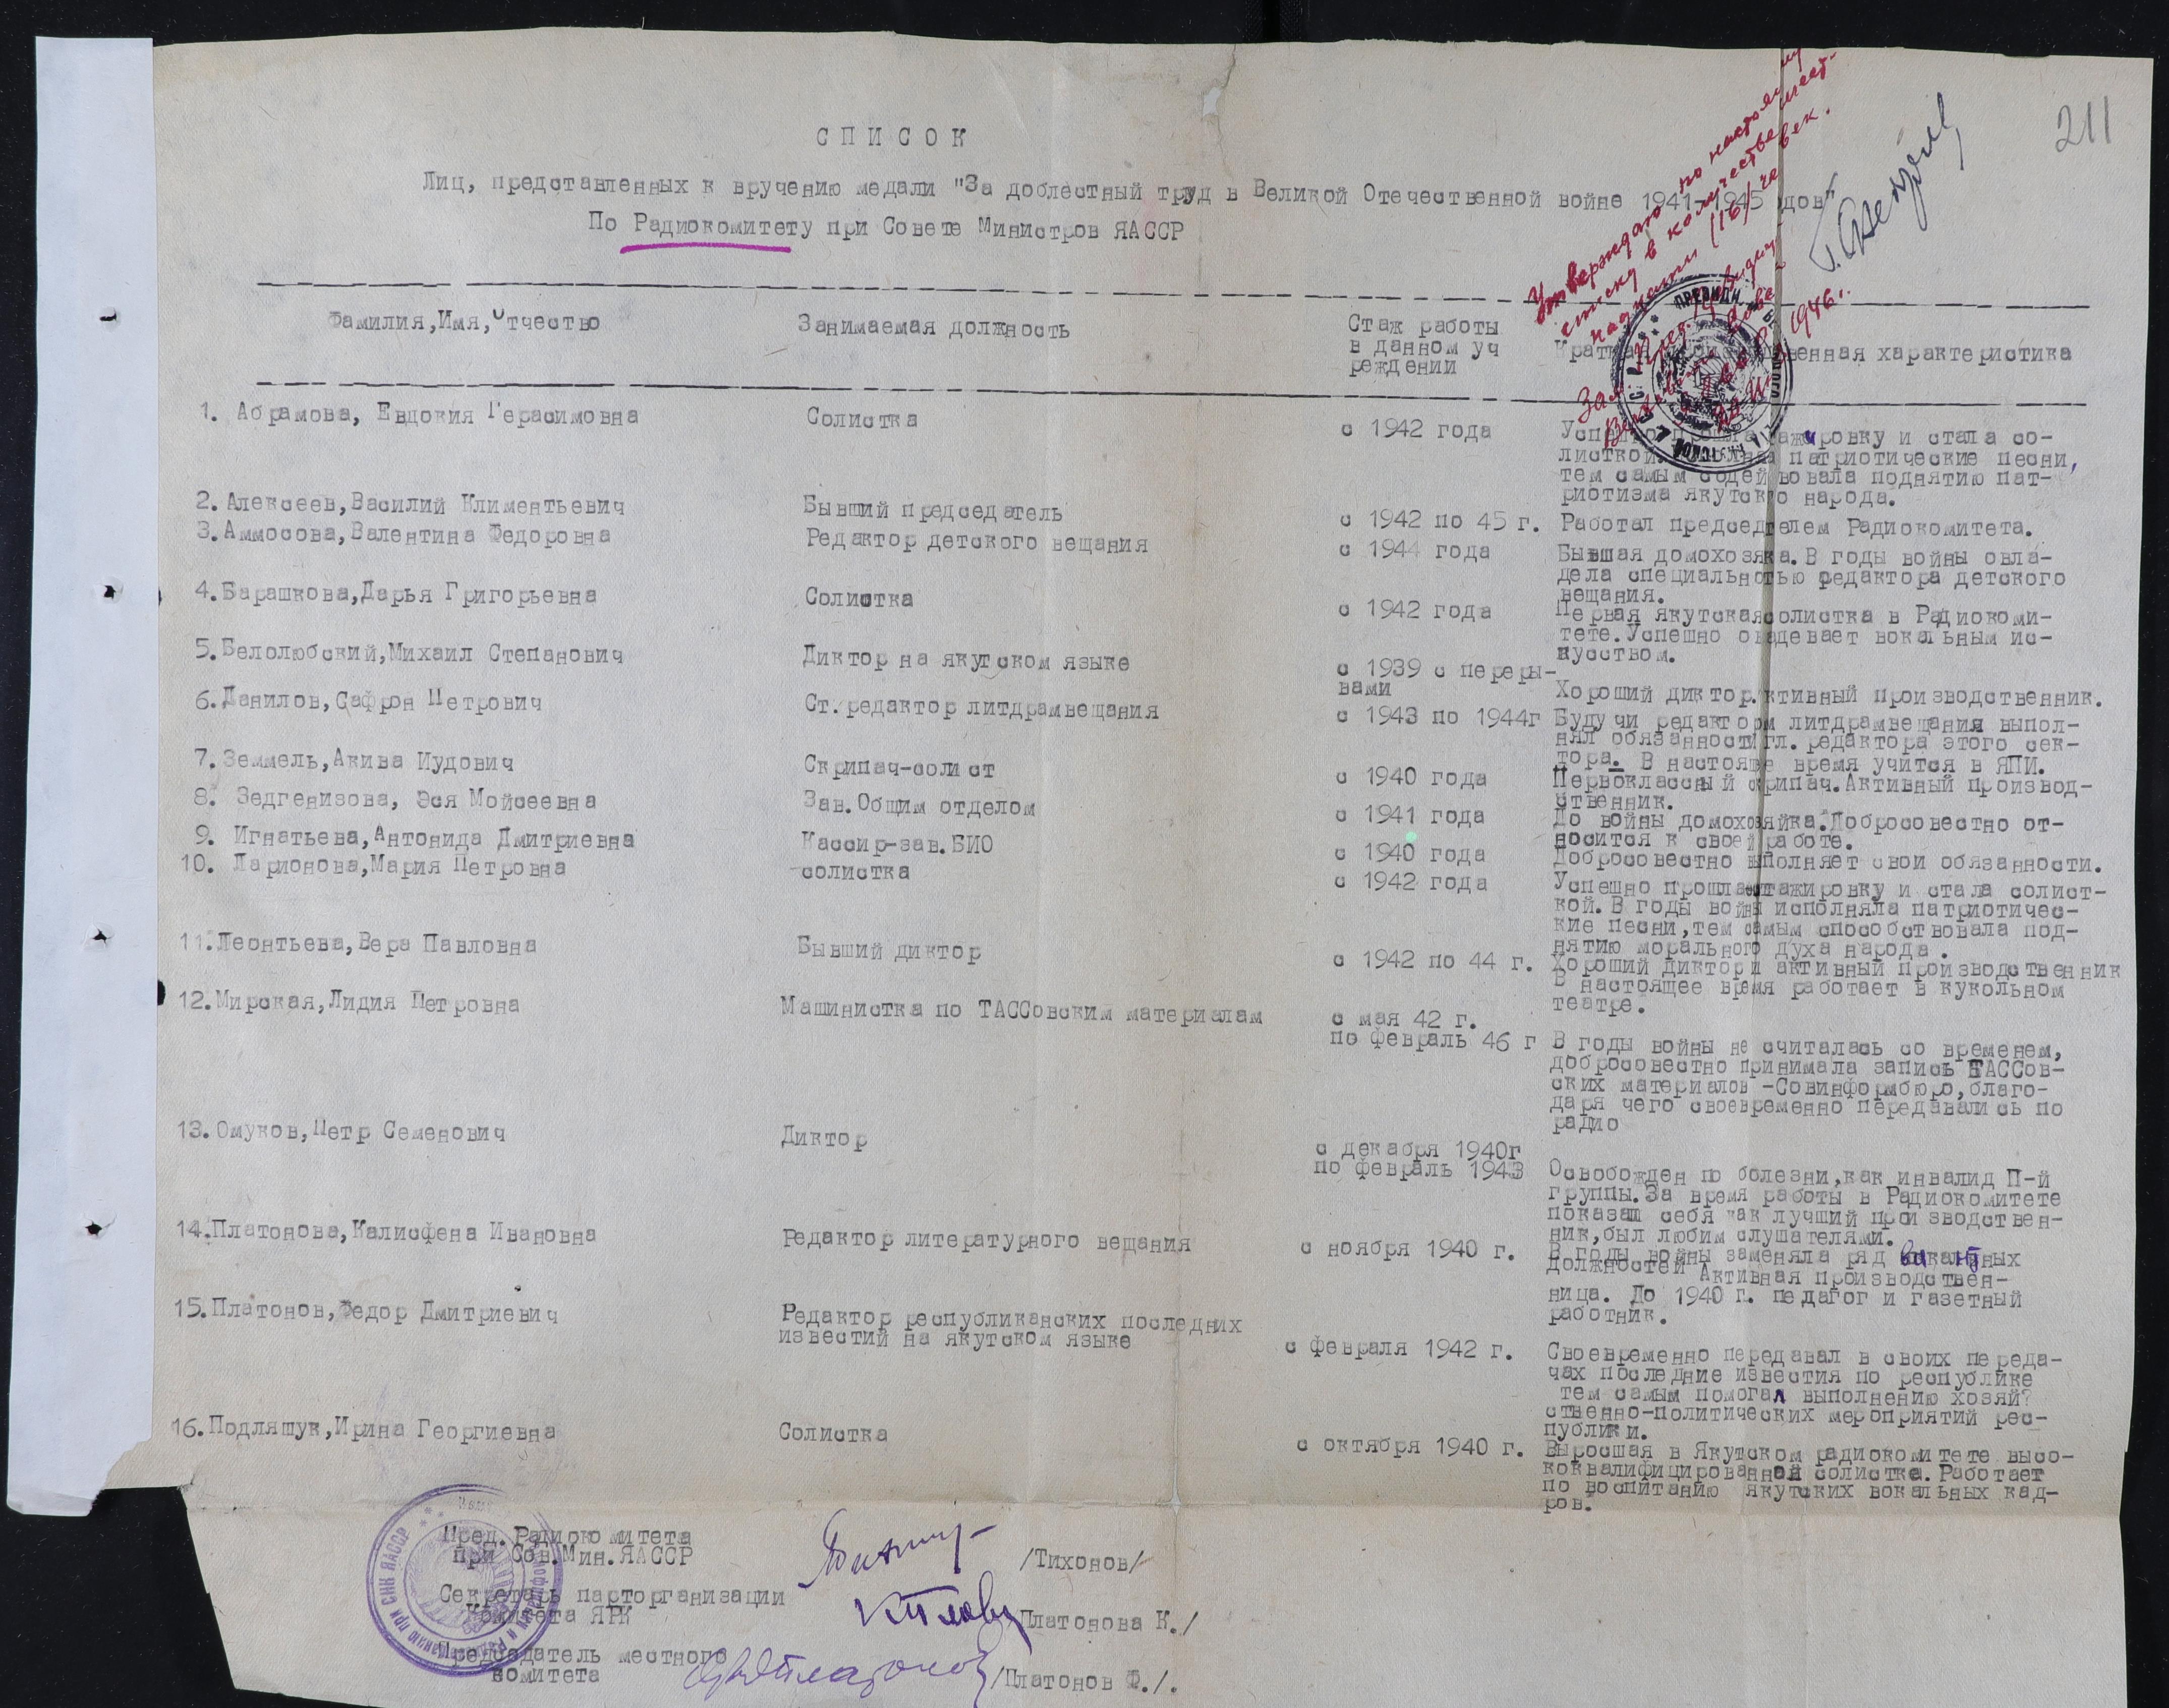 211
Утверждаю по настоящему
списку в количестве шест-
надцати /16/ человек.
Зам. Пред. Президиу-
1946 г.
С П И С О К
Лиц, представленных к вручению медали "За доблестный труд в Великой Отечественной войне 1941-1945 дов"
По Радиокомитету при Совете Министров ЯАССР
Фамилия,Имя,Отчество Занимаемая должность Стаж работы в данном уч реждении Краткая венная характеристика
1. Абрамова, Евдокия Герасимовна Солистка с 1942 года
Успешно прошла ажировку и стала со-
листкой. патриотические песни,
тем самым содей вовала поднятию пат-
риотизма якутского народа.
2. Алексеев,Василий Климентьевич Бывший председатель с 1942 по 45 г. Работал председателем Радиокомитета.
3. Аммосова,Валентина Федоровна Редактор детского вещания с 1944 года Бывшая домохозяка. В годы войны овла-
дела специальностью редактора детского
вещания.
4. Барашкова,Дарья Григорьевна Солистка с 1942 года Первая якутская солистка в Радиокоми-
тете. Успешно овадевает вокальным ис-
кусством.
5. Белолюбский,Михаил Степанович Диктор на якутском языке с 1939 с переры-
вами Хороший диктор. ктивный производственник.
6. Данилов,Сафрон Петрович Ст. редактор литдрамвещания с 1943 по 1944г Будучи редактором литдрамвещания выпол-
нял обязанности гл. редактора этого сек-
тора. В настояще время учится в ЯПИ.
7. Земмель,Акива Иудович Скрипач-солист с 1940 года Первоклассный скрипач. Активный производ-
ственник.
8. Зедгенизова, Эся Мойсеевна Зав. Общим отделом с 1941 года До войны домохозяйка. Добросовестно от-
носится к своей работе.
9. Игнатьева,Антонида Дмитриевна Кассир-зав. БИО с 1940 года Добросовестно выполняет свои обязанности.
10. Ларионова,Мария Петровна солистка с 1942 года Успешно прошла стажировку и стала солист-
кой. В годы войны исполняла патриотичес-
кие песни, тем самым способствовала под-
нятию морального духа народа.
11. Леонтьева,Вера Павловна Бывший диктор с 1942 по 44 г. Хороший диктор и активный производственник
В настоящее время работает в кукольном
театре.
12. Мирская,Лидия Петровна Машинистка по ТАССовским материалам с мая 42 г.
по февраль 46 г В годы войны не считалась со временем,
добросовестно принимала запись ТАССов-
ских материалов -Совинформбюро, благо-
даря чего своевременно передавались по
радио
13. Омуков,Петр Семенович Диктор с декабря 1940г
по февраль 1943 Освобожден по болезни, как инвалид П-й
группы. За время работы в Радиокомитете
показал себя как лучший производствен-
ник, был любим слушателями.
14. Платонова,Калисфена Ивановна Редактор литературного вещания с ноября 1940 г. В годы войны заменяла ряд вакантных
должностей Активная производствен-
ница. До 1940 г. педагог и газетный
работник.
15. Платонов,Федор Дмитриевич Редактор республиканских последних
известий на якутском языке с февраля 1942 г. Своевременно передавал в своих переда-
чах последние известия по республике
тем самым помогал выполнению хозяй?
ственно-политических мероприятий рес-
публики.
16. Подляшук,Ирина Георгиевна Солистка с октября 1940 г. Выросшая в Якутском радиокомитете высо-
коквалифицированной солистка. Работает
по воспитанию якутских вокальных кад-
ров.
Пред. Радиокомитета
при Сов. Мин. ЯАССР /Тихонов/
Секретарь парторганизации
Комитета ЯРК /Платонова К./
Председатель местного
комитета /Платонов Ф./.
при СНК ЯАССР